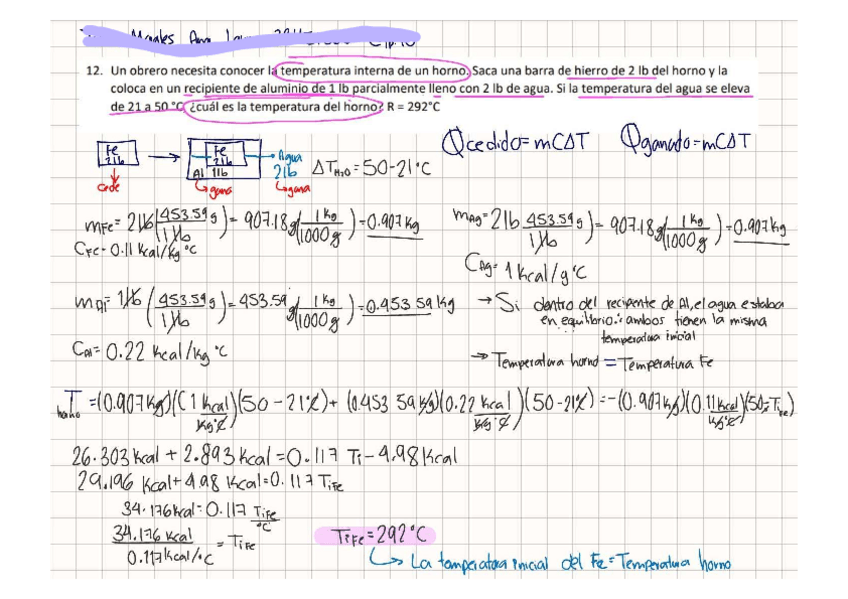 Morales
12. Un obrero necesita conocer la temperatura interna de un horno. Saca una barra de hierro de 2 lb del horno y la
coloca en un recipiente de aluminio de 1 lb parcialmente lleno con 2 lb de agua. Si la temperatura del agua se eleva
de 21 a 50 °C ¿cuál es la temperatura del horno? R = 292°C
Qcedido = mCΔT Qganado = mCΔT
Fe 2 lb → Fe 2 lb Al 1 lb → Agua 2 lb ΔT H₂O = 50-21°C
Cede gana gana
mFe = 2 lb (453.59 g / 1 lb) = 907.18 g (1 kg / 1000 g) = 0.907 kg
CFe = 0.11 Kcal/Kg °C
mAg = 2 lb (453.59 g / 1 lb) = 907.18 g (1 kg / 1000 g) = 0.907 kg
CAg = 1 Kcal/g °C
mAl = 1 lb (453.59 g / 1 lb) = 453.59 g (1 kg / 1000 g) = 0.453 59 kg
CAl = 0.22 Kcal/kg °C
→ Si dentro del recipente de Al, el agua estaba
en equilibrio ∴ ambos tienen la misma
temperatura inicial
→ Temperatura horno = Temperatura Fe
T horno = (0.907 Kg)(1 Kcal / Kg °C)(50 - 21°C) + (0.453 59 Kg)(0.22 Kcal / Kg °C)(50-21°C) = -(0.907 Kg)(0.11 Kcal / Kg °C)(50 - TiFe)
26.303 Kcal + 2.893 Kcal = 0.117 Ti - 4.98 Kcal
29.196 Kcal + 4.98 Kcal = 0.117 TiFe
34.176 Kcal = 0.117 TiFe / °C
34.176 Kcal / 0.117 Kcal/°C = TiFe
TiFe = 292°C
→ La temperatura inicial del Fe = Temperatura horno